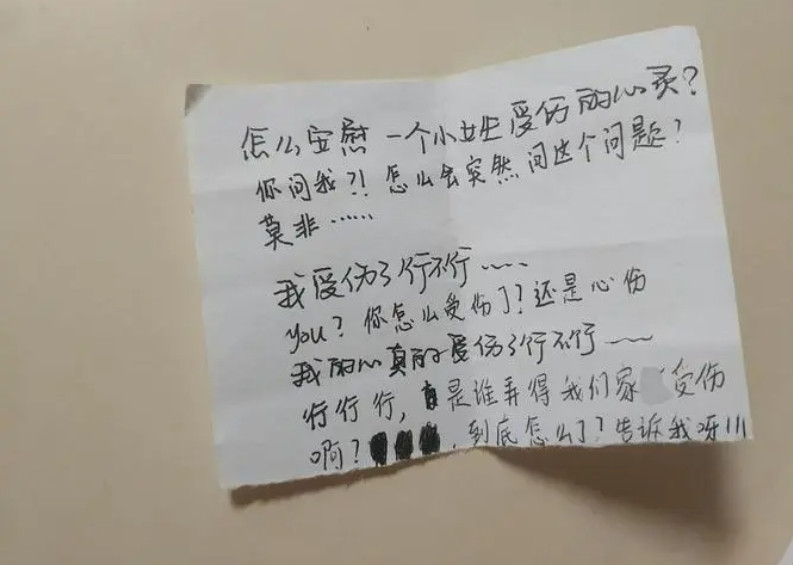 怎么安慰一个小女生受伤的心灵?
你问我?! 怎么会突然问这个问题?
莫非……
我受伤了行不行……
you? 你怎么受伤了? 还是心伤
我的心真的受伤了行不行——
行行行, 是谁弄得我们家 受伤
啊? , 到底怎么了? 告诉我呀!!!